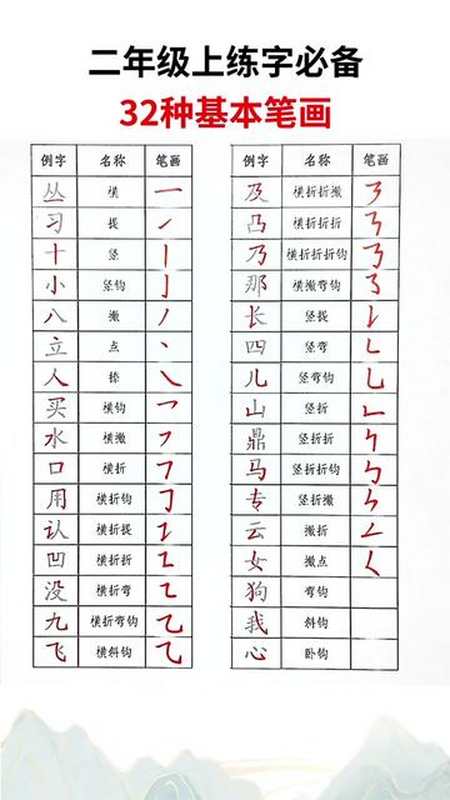 二年级上练字必备
32种基本笔画
例字 名称 笔画
丛 横
习 提
十 竖
小 竖钩
八 撇
立 点
人 捺
买 横钩
水 横撇
口 横折
用 横折钩
认 横折提
凹 横折折
没 横折弯
九 横折弯钩
飞 横斜钩
例字 名称 笔画
及 横折折撇
凸 横折折折
乃 横折折折钩
那 横撇弯钩
长 竖提
四 竖弯
儿 竖弯钩
山 竖折
鼎 竖折折
马 竖折折钩
专 竖折撇
云 撇折
女 撇点
狗 弯钩
我 斜钩
心 卧钩